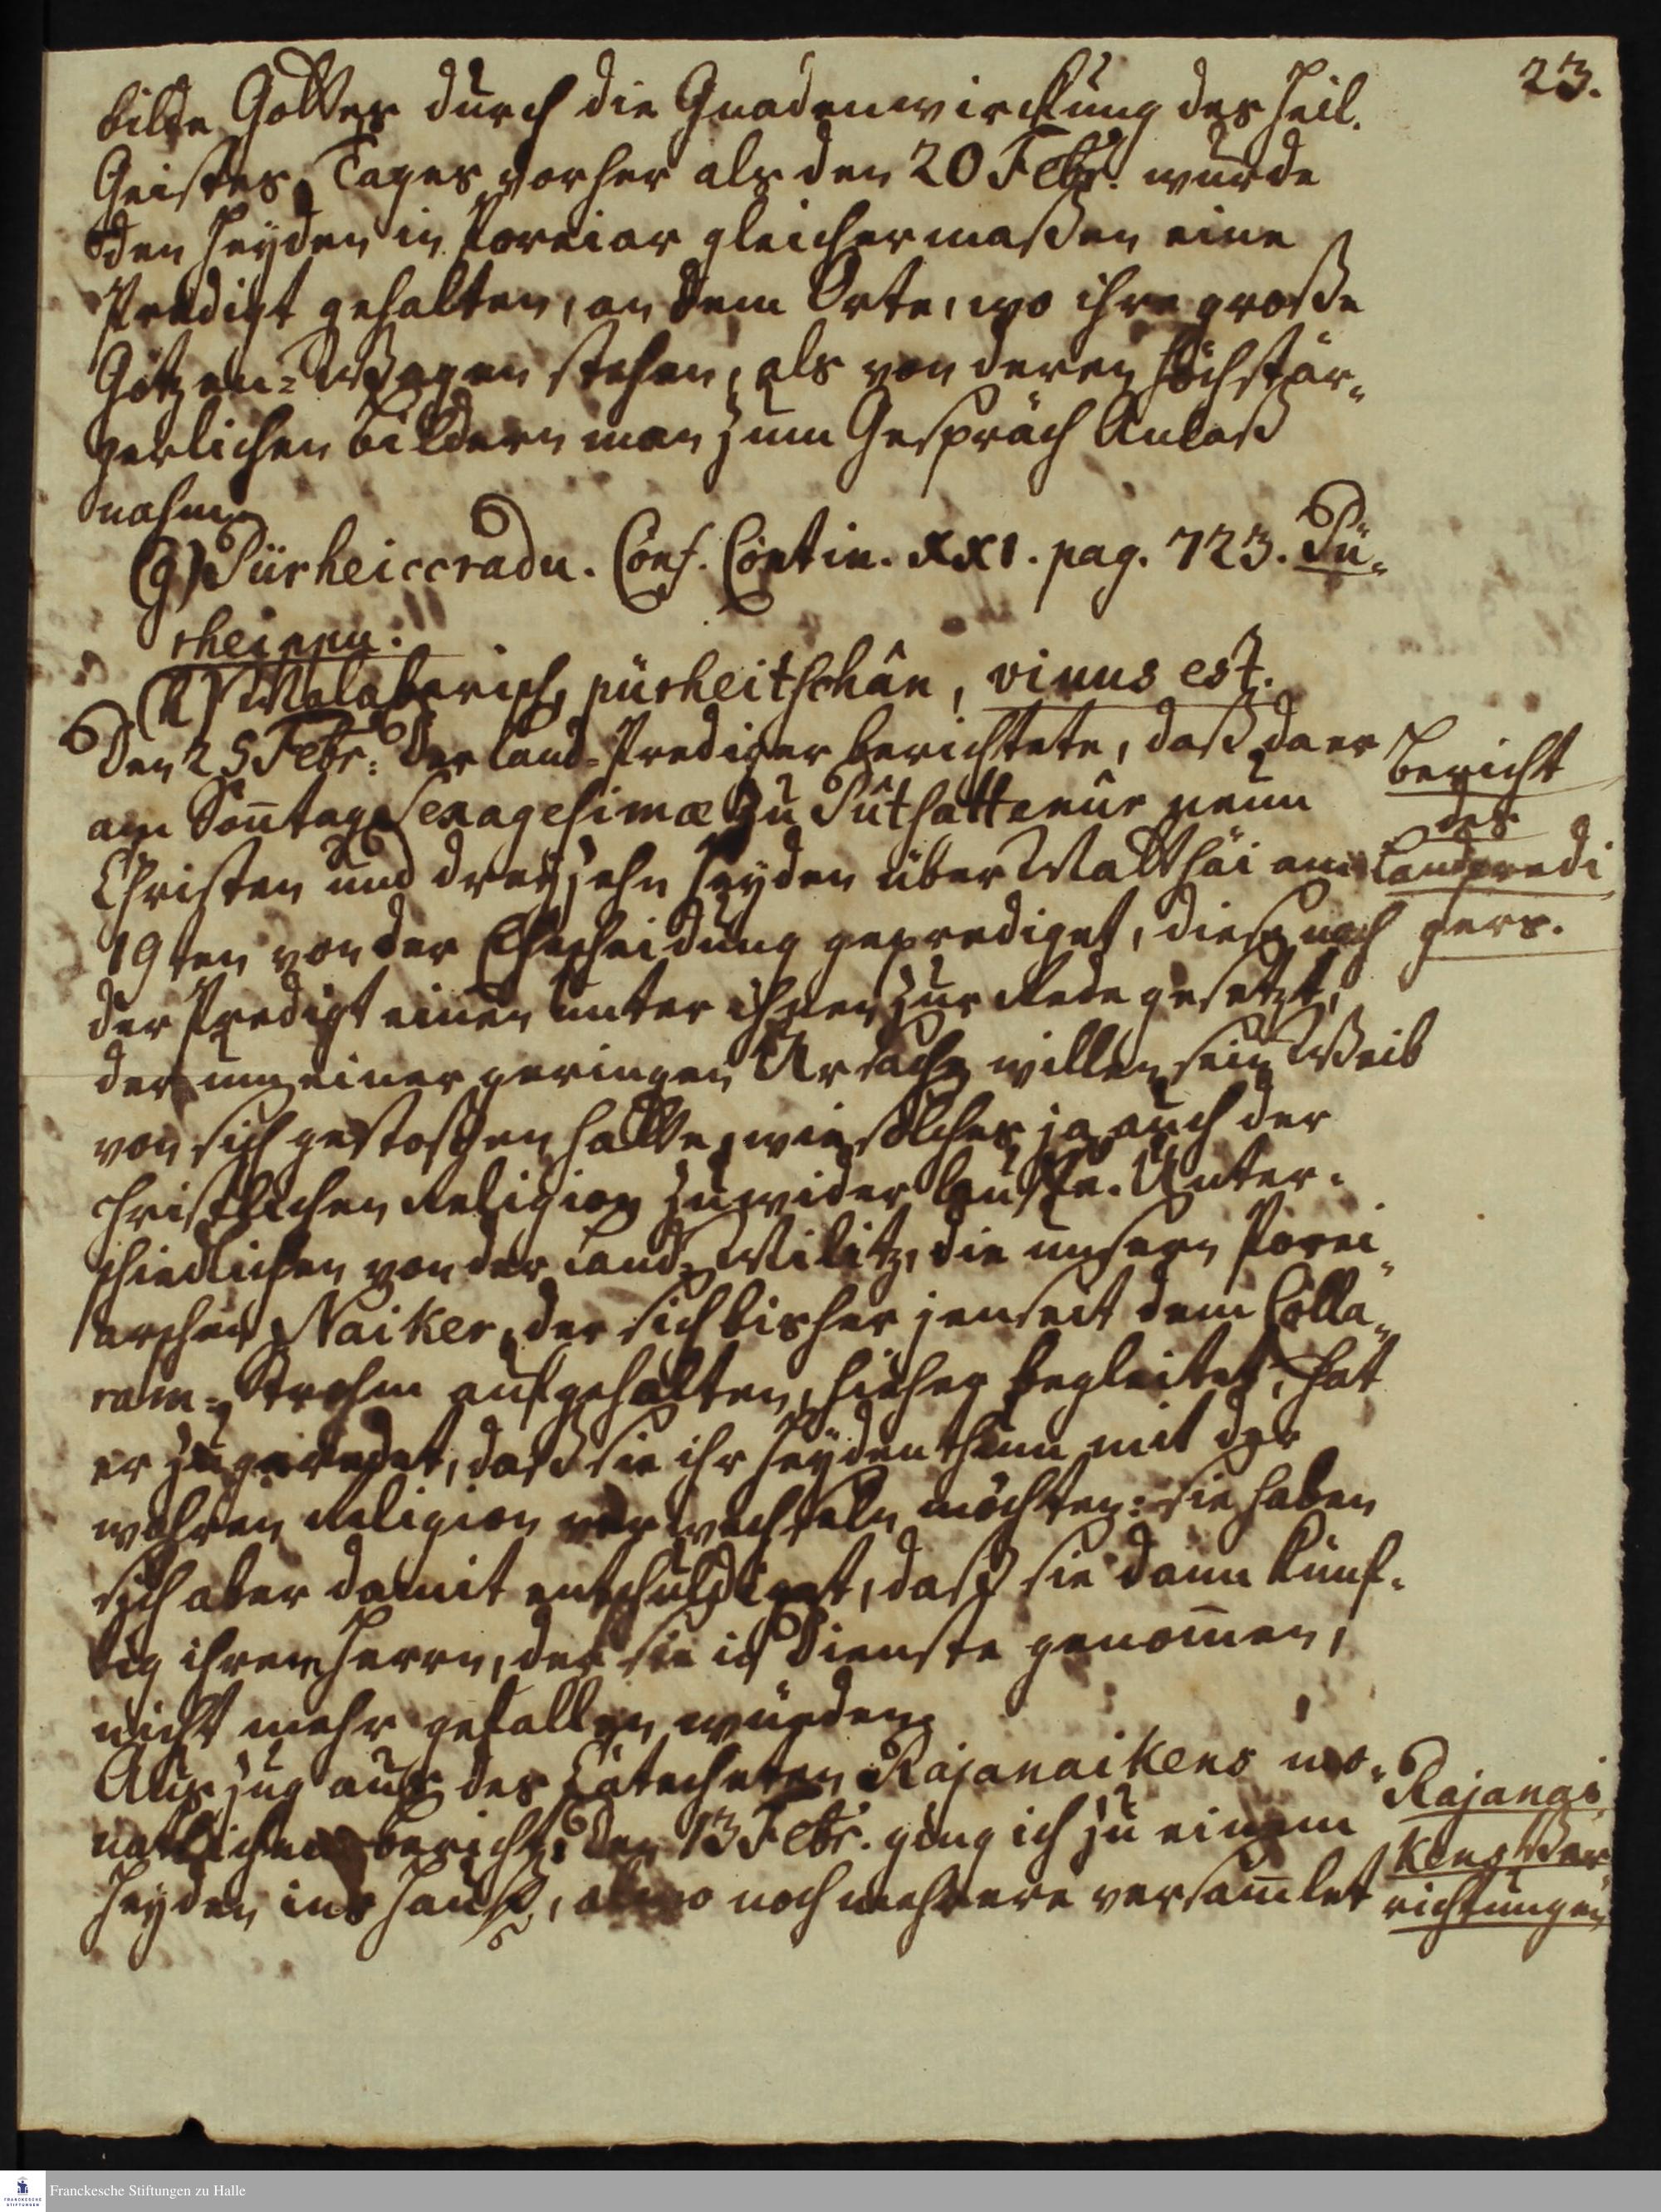 23.
bilde Gottes durch die Gnadenwirckung des Heil.
Geistes. Tages vorher als den 20 Febr. wurde
den Heyden in Poreiar gleichermaßen eine
Predigt gehalten, an dem Orte, wo ihre große
Götzen-Wagen stehen, als von deren höchstär-
gerlichen Bildern man zum Gespräch Anlaß
nahm.
(g) Pürheiccradu. Conf. Contin. XXI. pag. 723. Pü-
rheippu.
(h) Malabarisch, pürheitschân, vinus est.
Den 25 Febr: Der Land-Prediger berichtete, daß da er
am Soñtage Sexagesimæ zu Pûthattenûr neun
Christen und dreyzehn Heyden über Matthäi am
19ten von der Ehescheidung geprediget, diese nach
der Predigt einen unter ihnen zur Rede gesetzt,
der um einer geringen Ursache willen sein Weib
von sich gestoßen hatte, wie solches ja auch der
christlichen Religion zuwider lauffe. Unter-
schiedlichen von der Land-Militz, die unsern Porei-
arschen Naiker, der sich bisher jenseit dem Colla-
ram-Strohm aufgehalten, hieher begleitet, hat
er zugeredet, daß sie ihr Heydenthum mit der
wahren Religion verwechseln möchten: sie haben
sich aber damit entschuldiget, daß sie dann künf-
tig ihrem Herrn, der sie in Dienste genom̃en,
nicht mehr gefallen würden.
Auszug aus des Catecheten Rajanaikens mo-
natlichen Bericht: Den 13 Febr. ging ich zu einem
Heyden ins Hauß, alwo noch mehrere versam̃let
Bericht
des
Landpredi
gers.
Rajanai
kens Ver
richtungen
Franckesche Stiftungen zu Halle